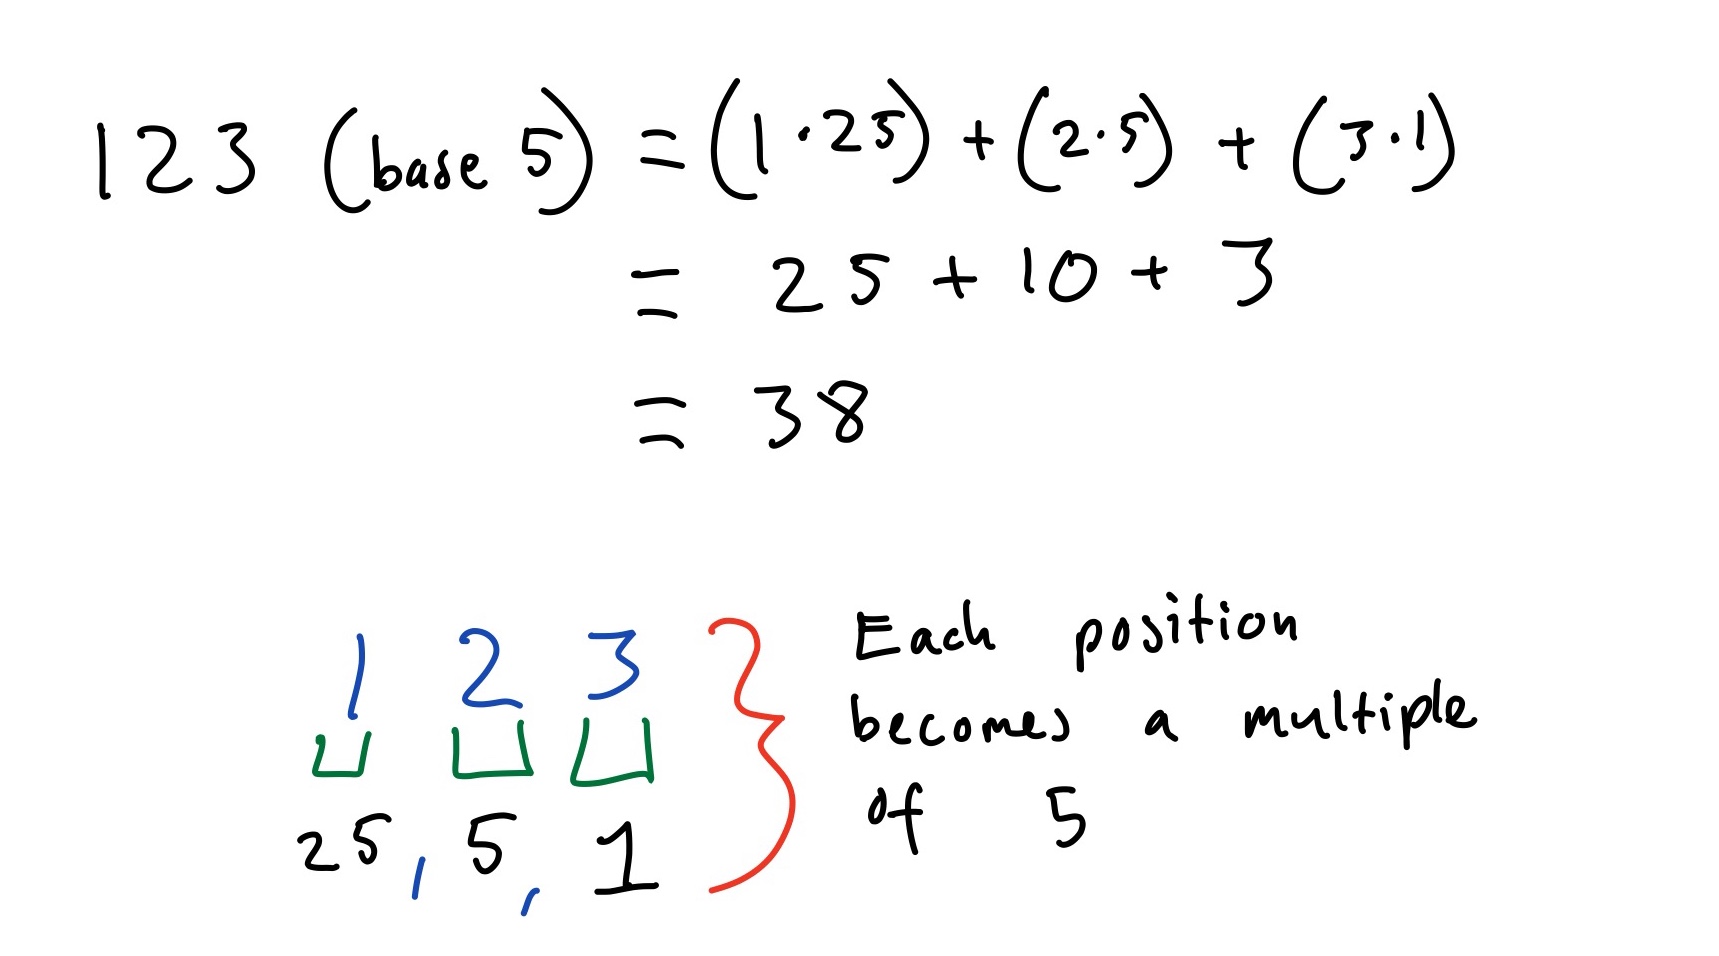 123 (base 5) = (1·25) + (2·5) + (3·1)
= 25 + 10 + 3
= 38
1 2 3
25, 5, 1
Each position
becomes a multiple
of 5